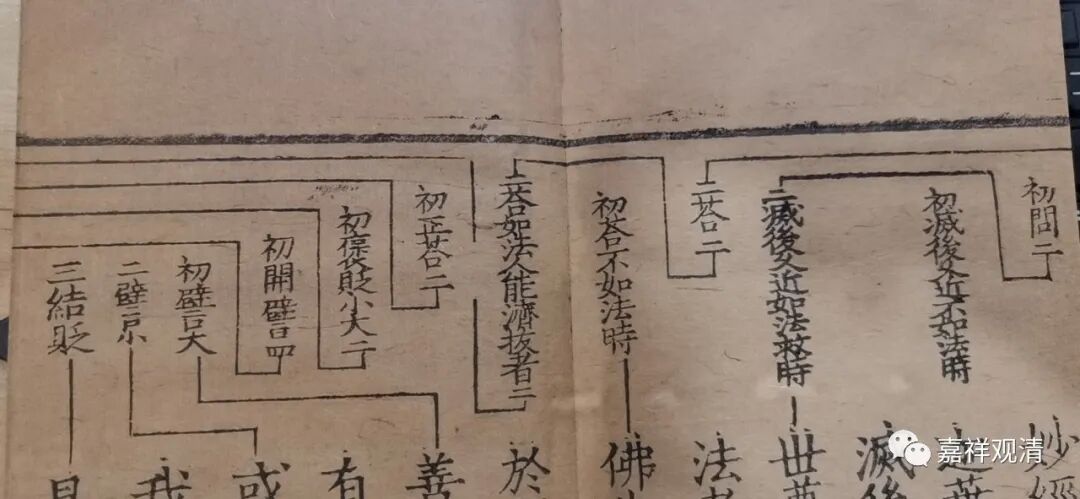 初問二
初滅後久近不如法時
二滅後久近如法救時
二荅二
初荅不如法時
二荅如法人能濟拔者二
初正荅二
初保貶小大二
初開譬四
初譬大
二譬小
三結貶
妙經
滅後
世
法
佛
於
善
有
或
我
嘉祥观清